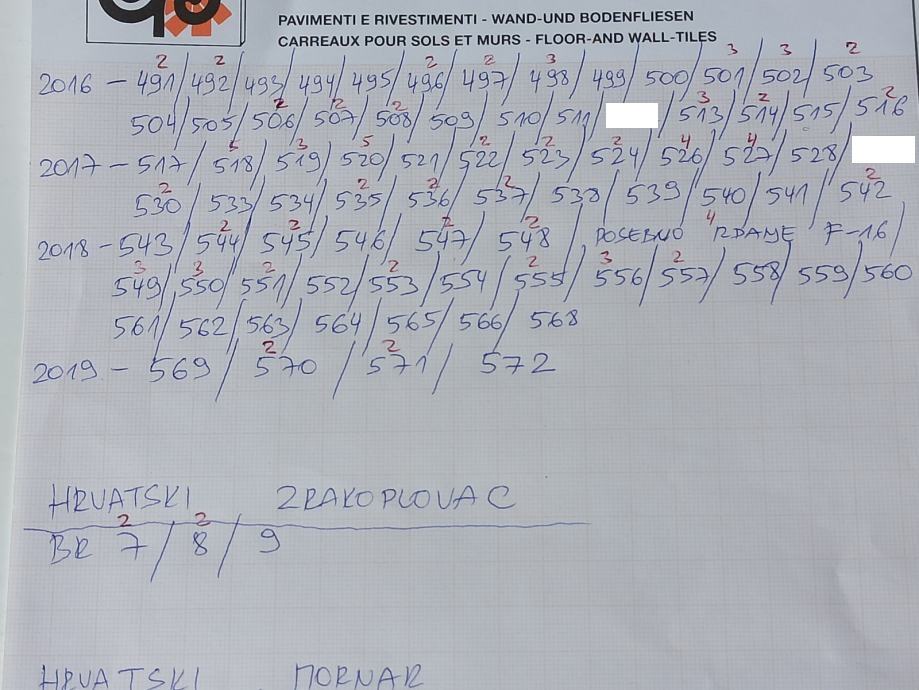 PAVIMENTI E RIVESTIMENTI - WAND-UND BODENFLIESEN
CARREAUX POUR SOLS ET MURS - FLOOR-AND WALL-TILES
2 2 2 2 3 3 3 2
2016 - 491/492/493/494/495/496/497/498/499/500/501/502/503
2 2 2 3 2 2
504/505/506/507/508/509/510/511/ /513/514/515/516
5 3 5 2 2 2 4 4
2017 - 517/518/519/520/521/522/523/524/526/527/528/
2 2 2 2 2
530/533/534/535/536/537/538/539/540/541/542
2 2 2 2 4
2018 - 543/544/545/546/547/548/POSEBNO IZDANJE F-16/
3 3 2 2 2 3 2
549/550/551/552/553/554/555/556/557/558/559/560
561/562/563/564/565/566/568
2 2
2019 - 569/570/571/572
HRVATSKI ZRAKOPLOVAC
2 2
BR 7/8/9
HRVATSKI MORNAR